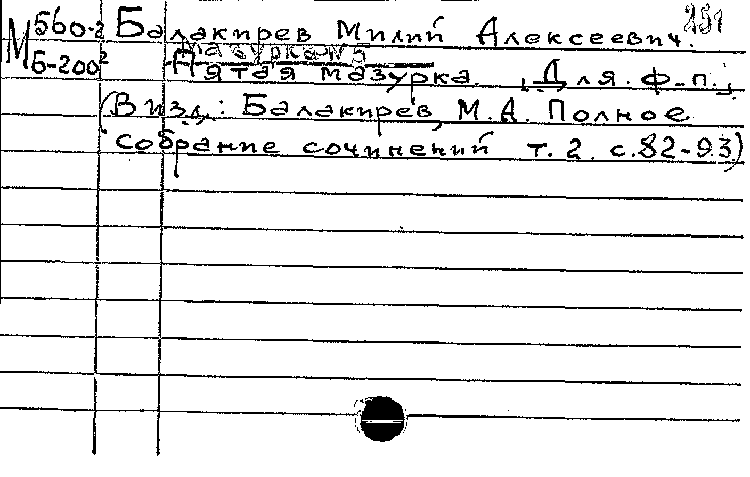 251
М 560-2 Балакирев Милий Алексеевич.
Б-200² Мазурка №5
Пятая мазурка. [Для ф-п.]
(В изд.: Балакирев, М.А. Полное
собрание сочинений т. 2. с. 82-93)